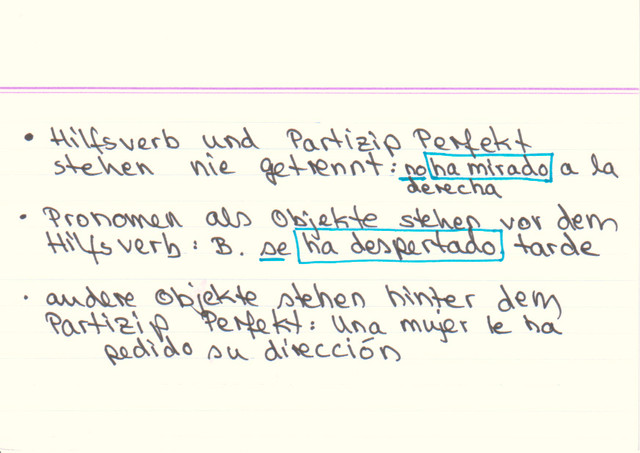 • Hilfsverb und Partizip Perfekt
stehen nie getrennt: no ha mirado a la
derecha
• Pronomen als Objekte stehen vor dem
Hilfsverb: B. se ha despertado tarde
• andere Objekte stehen hinter dem
Partizip Perfekt: Una mujer le ha
pedido su dirección